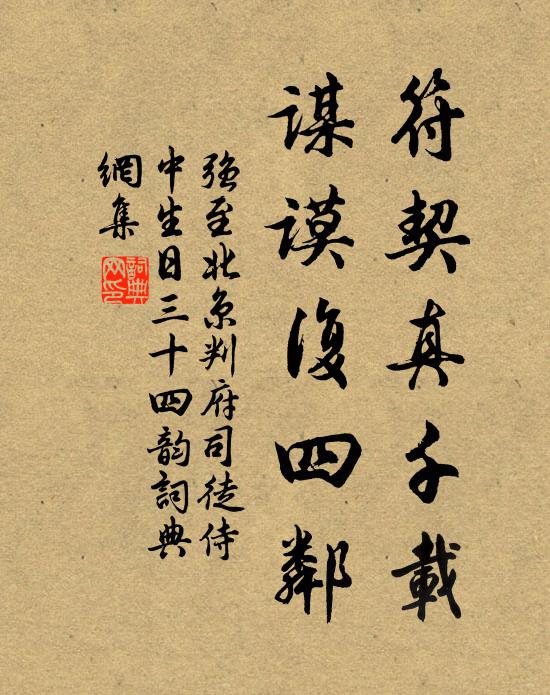 符契真千載
謀謨復四鄰
強至北京判府司徒侍
中生日三十四韵詞典
網集
詞典網印